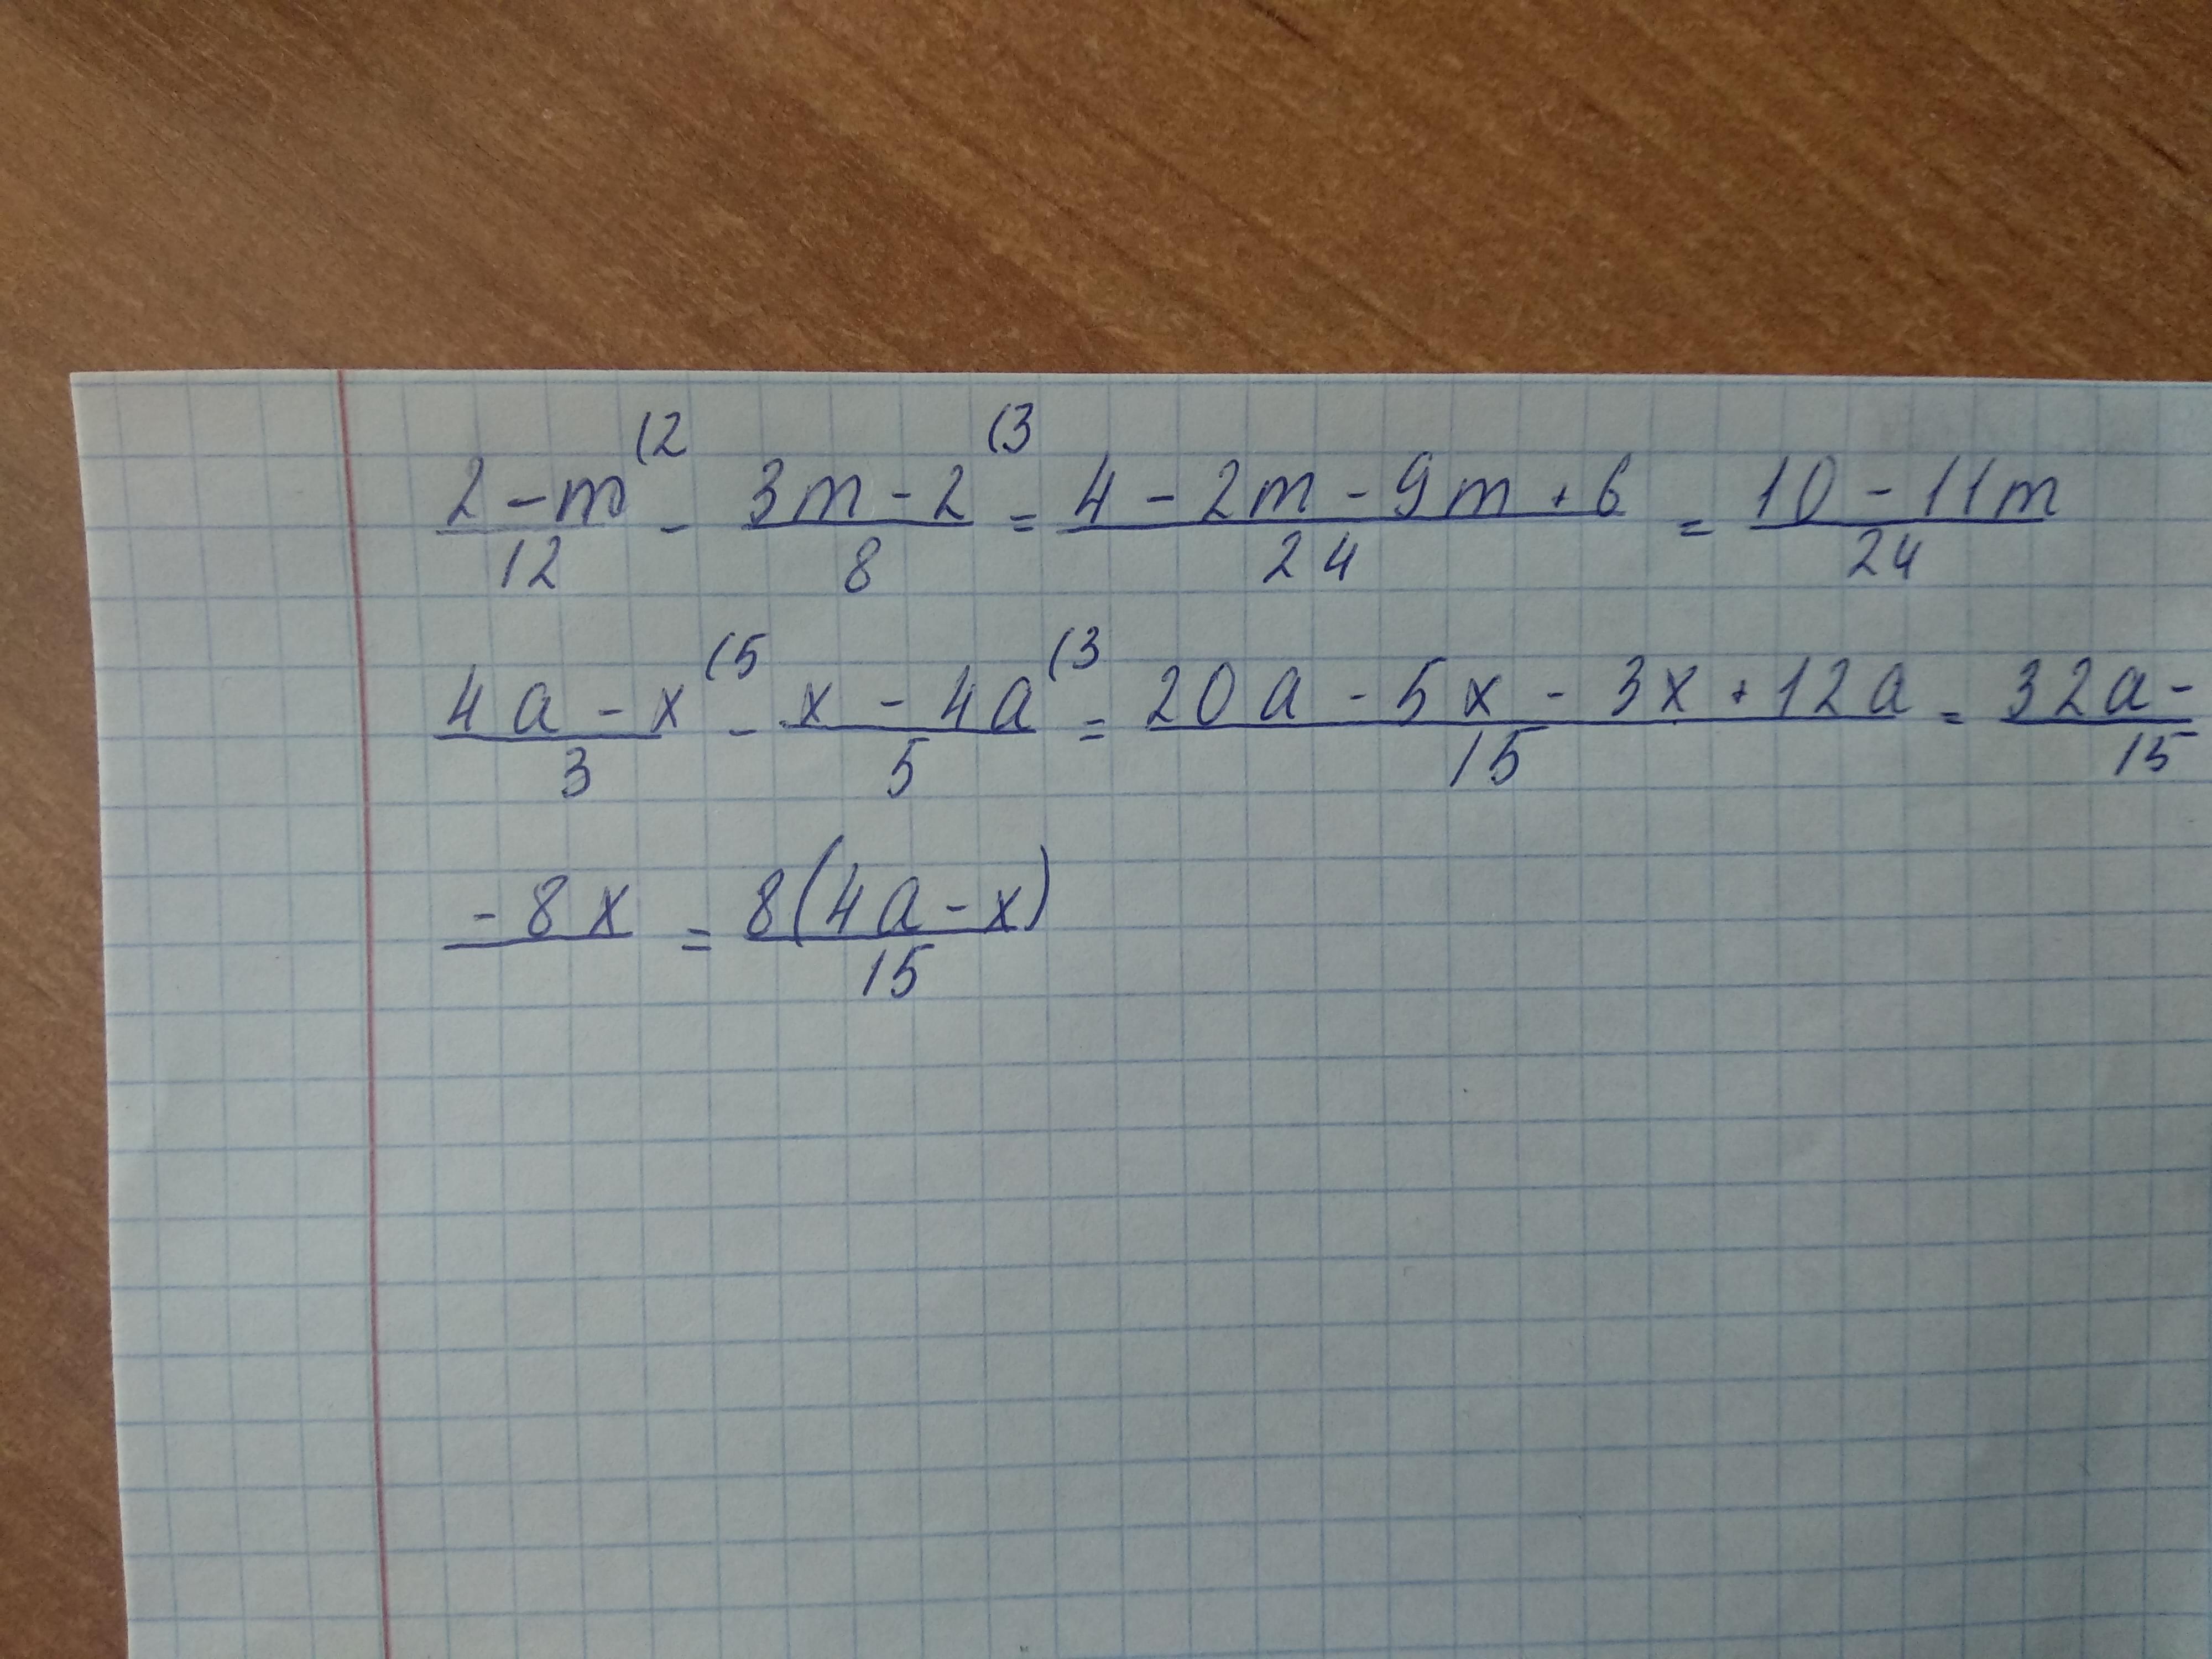 2 - m (2 / 12 - 3m - 2 (3 / 8 = 4 - 2m - 9m + 6 / 24 = 10 - 11m / 24
4a - x (5 / 3 - x - 4a (3 / 5 = 20a - 5x - 3x + 12a / 15 = 32a - / 15
- 8x = 8(4a - x) / 15